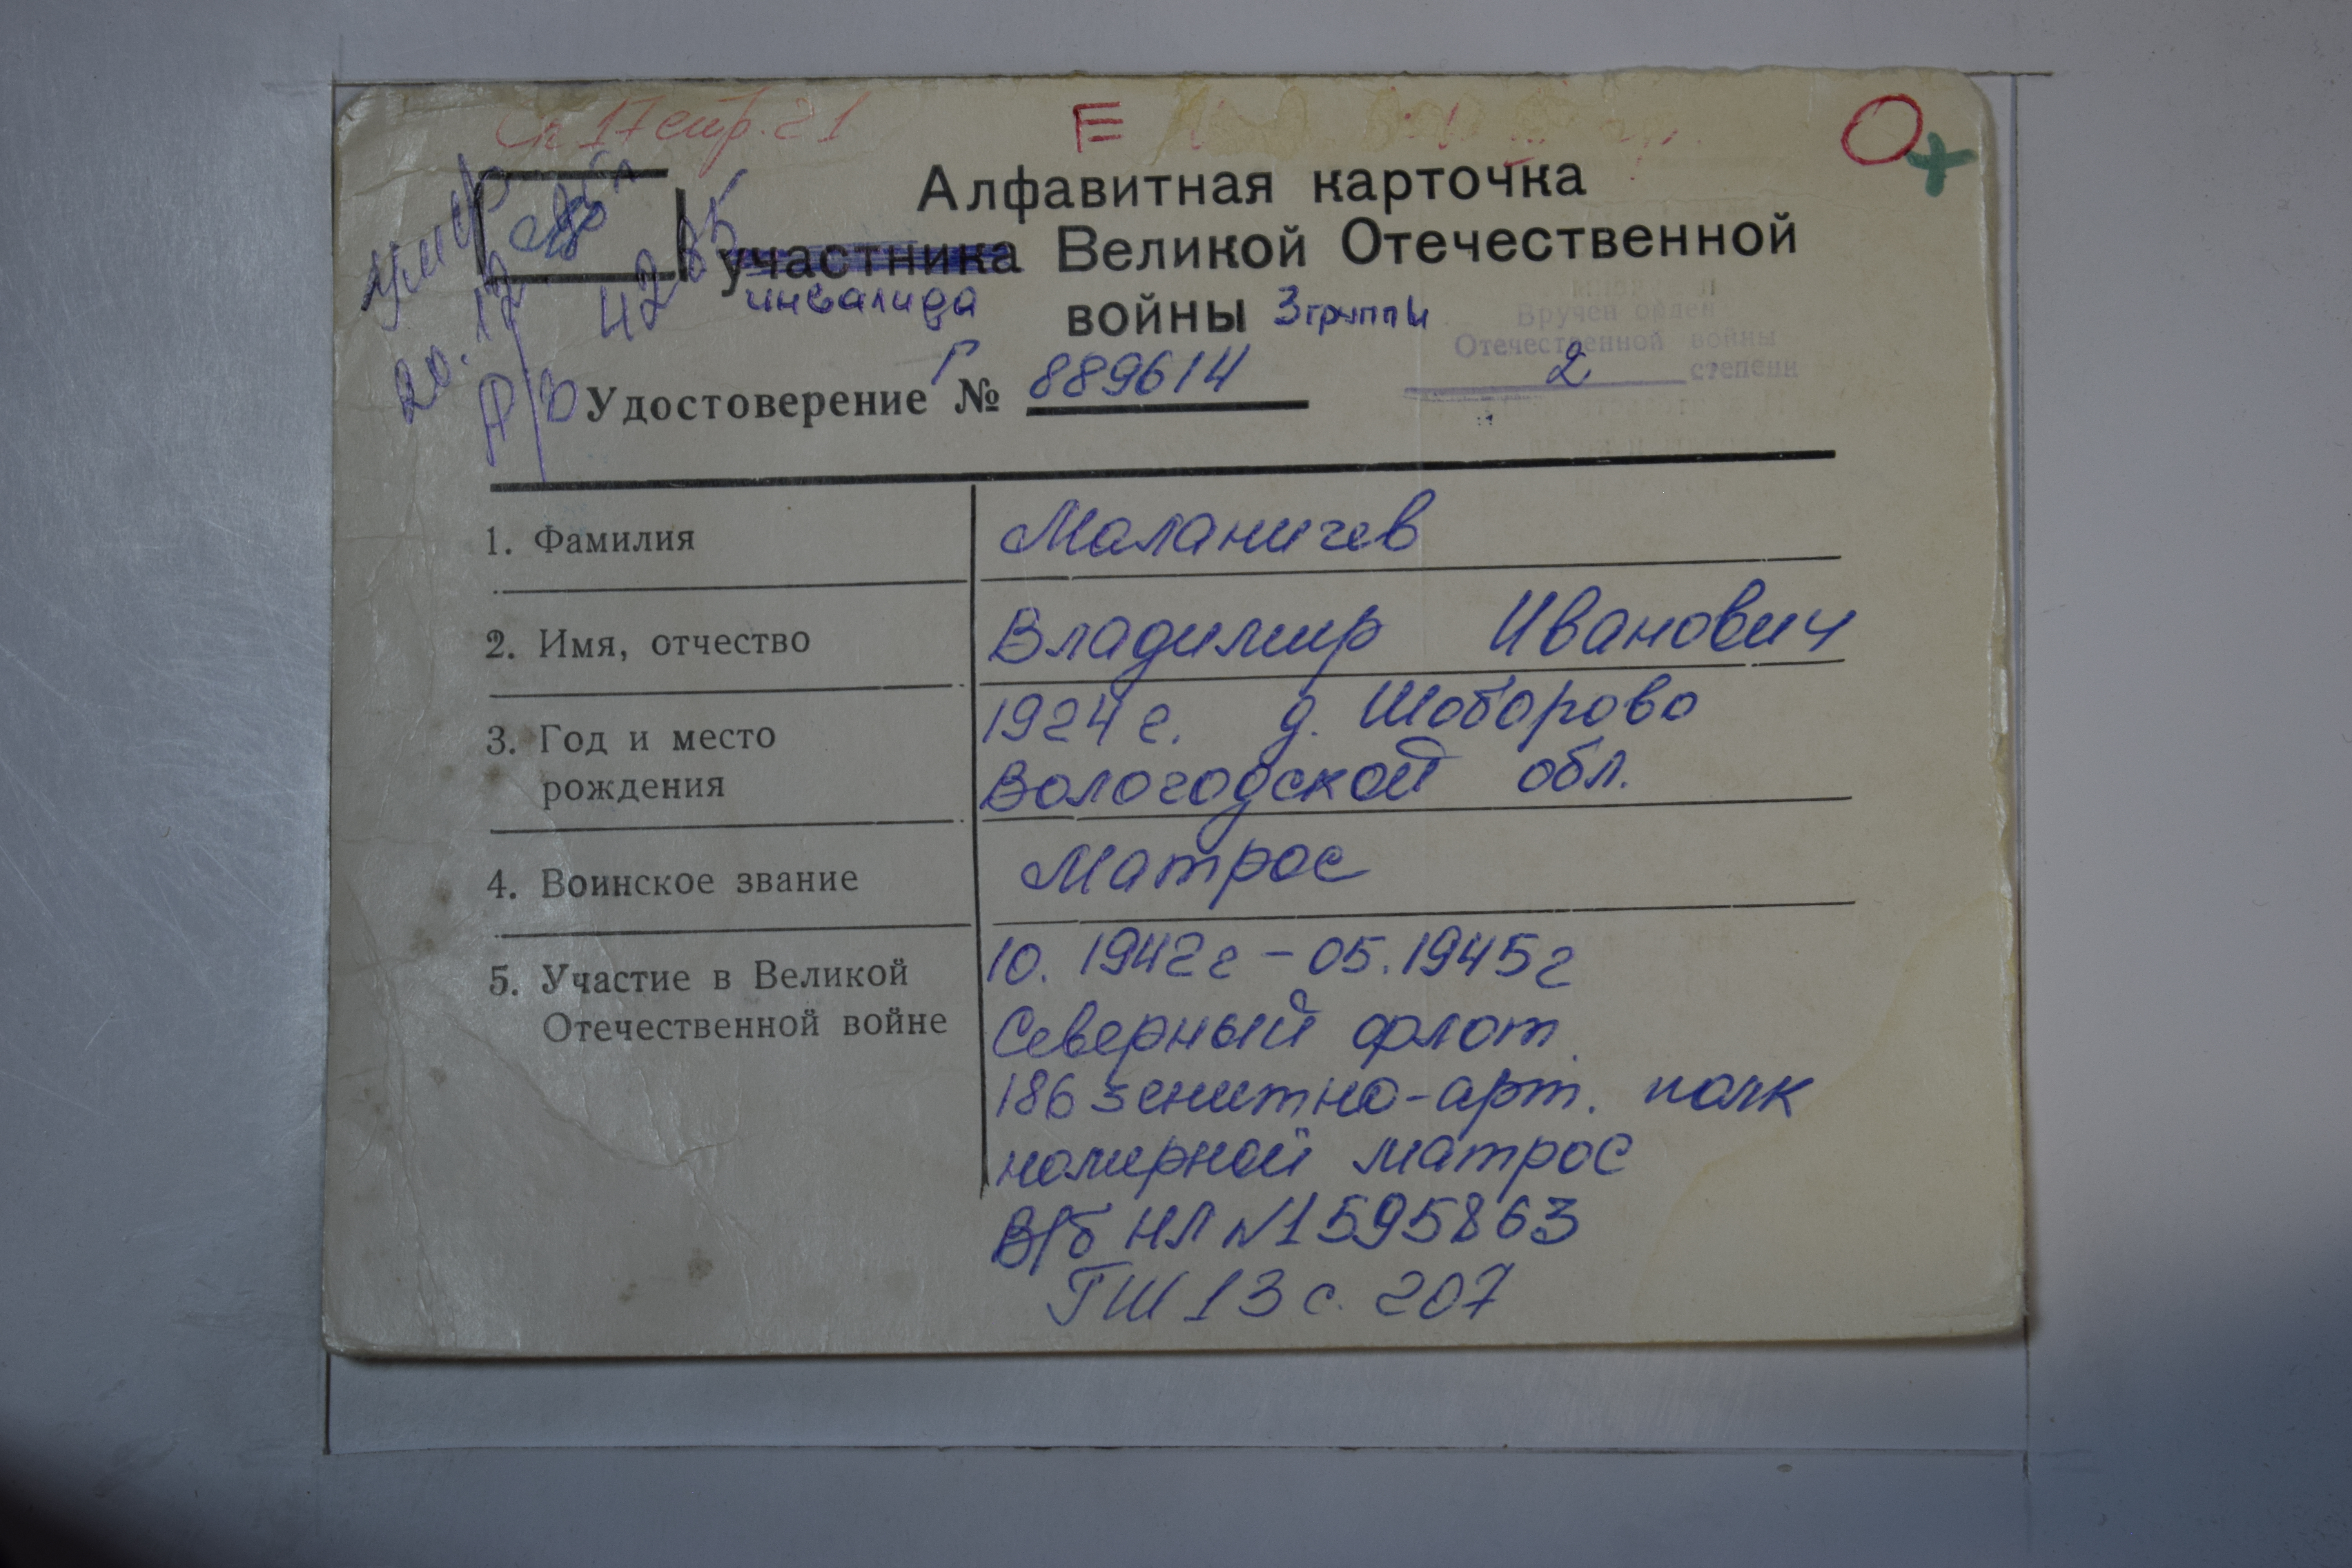 Сп 17 стр. 21 Е
Алфавитная карточка
участника Великой Отечественной
инвалида войны 3 группы
Вручен орден
Отечественной войны
2 степени
Удостоверение Г № 889614
1. Фамилия Маланичев
2. Имя, отчество Владимир Иванович
3. Год и место 1924 г. д. Шоборово
рождения Вологодской обл.
4. Воинское звание Матрос
5. Участие в Великой 10. 1942 г – 05.1945 г
Отечественной войне Северный флот
186 зенитно-арт. полк
номерной матрос
В/б НЛ №1595863
ГШ 13 с. 207